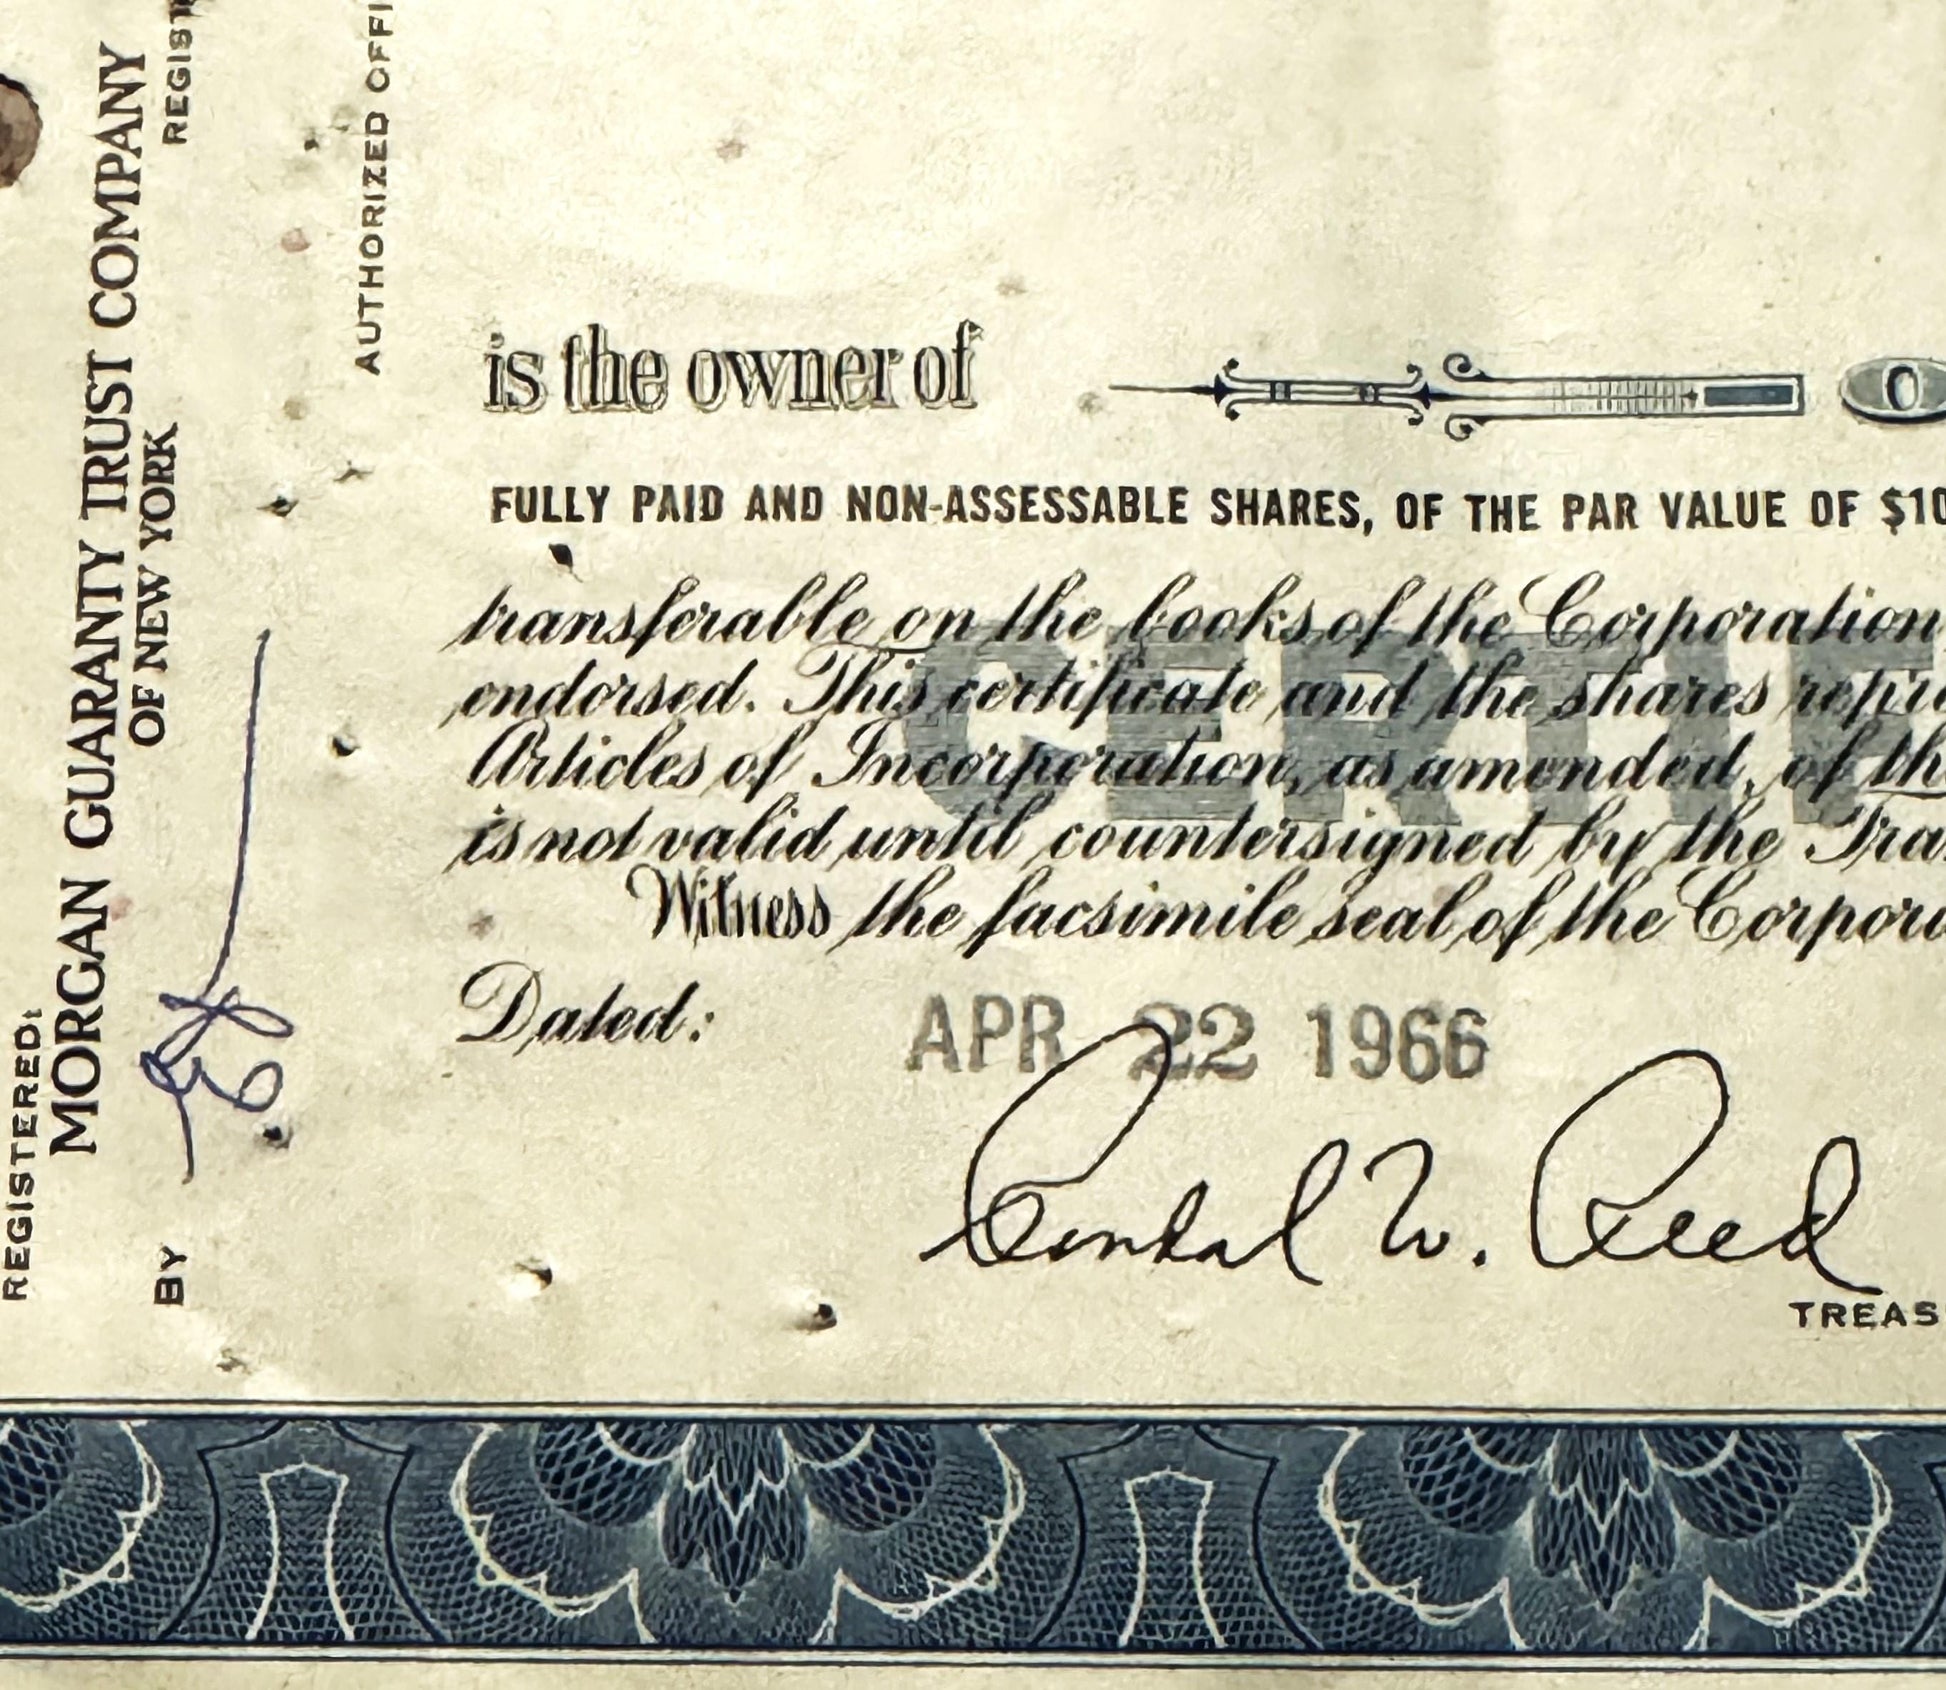 REGISTERED:
MORGAN GUARANTY TRUST COMPANY
OF NEW YORK
REGIST
BY
AUTHORIZED OFFI
is the owner of
FULLY PAID AND NON-ASSESSABLE SHARES, OF THE PAR VALUE OF $10
transferable on the books of the Corporation
endorsed. This certificate and the shares repre
Articles of Incorporation, as amended, of th
is not valid until countersigned by the Tra
Witness the facsimile seal of the Corpor
Dated: APR 22 1966
W. Reed
TREAS